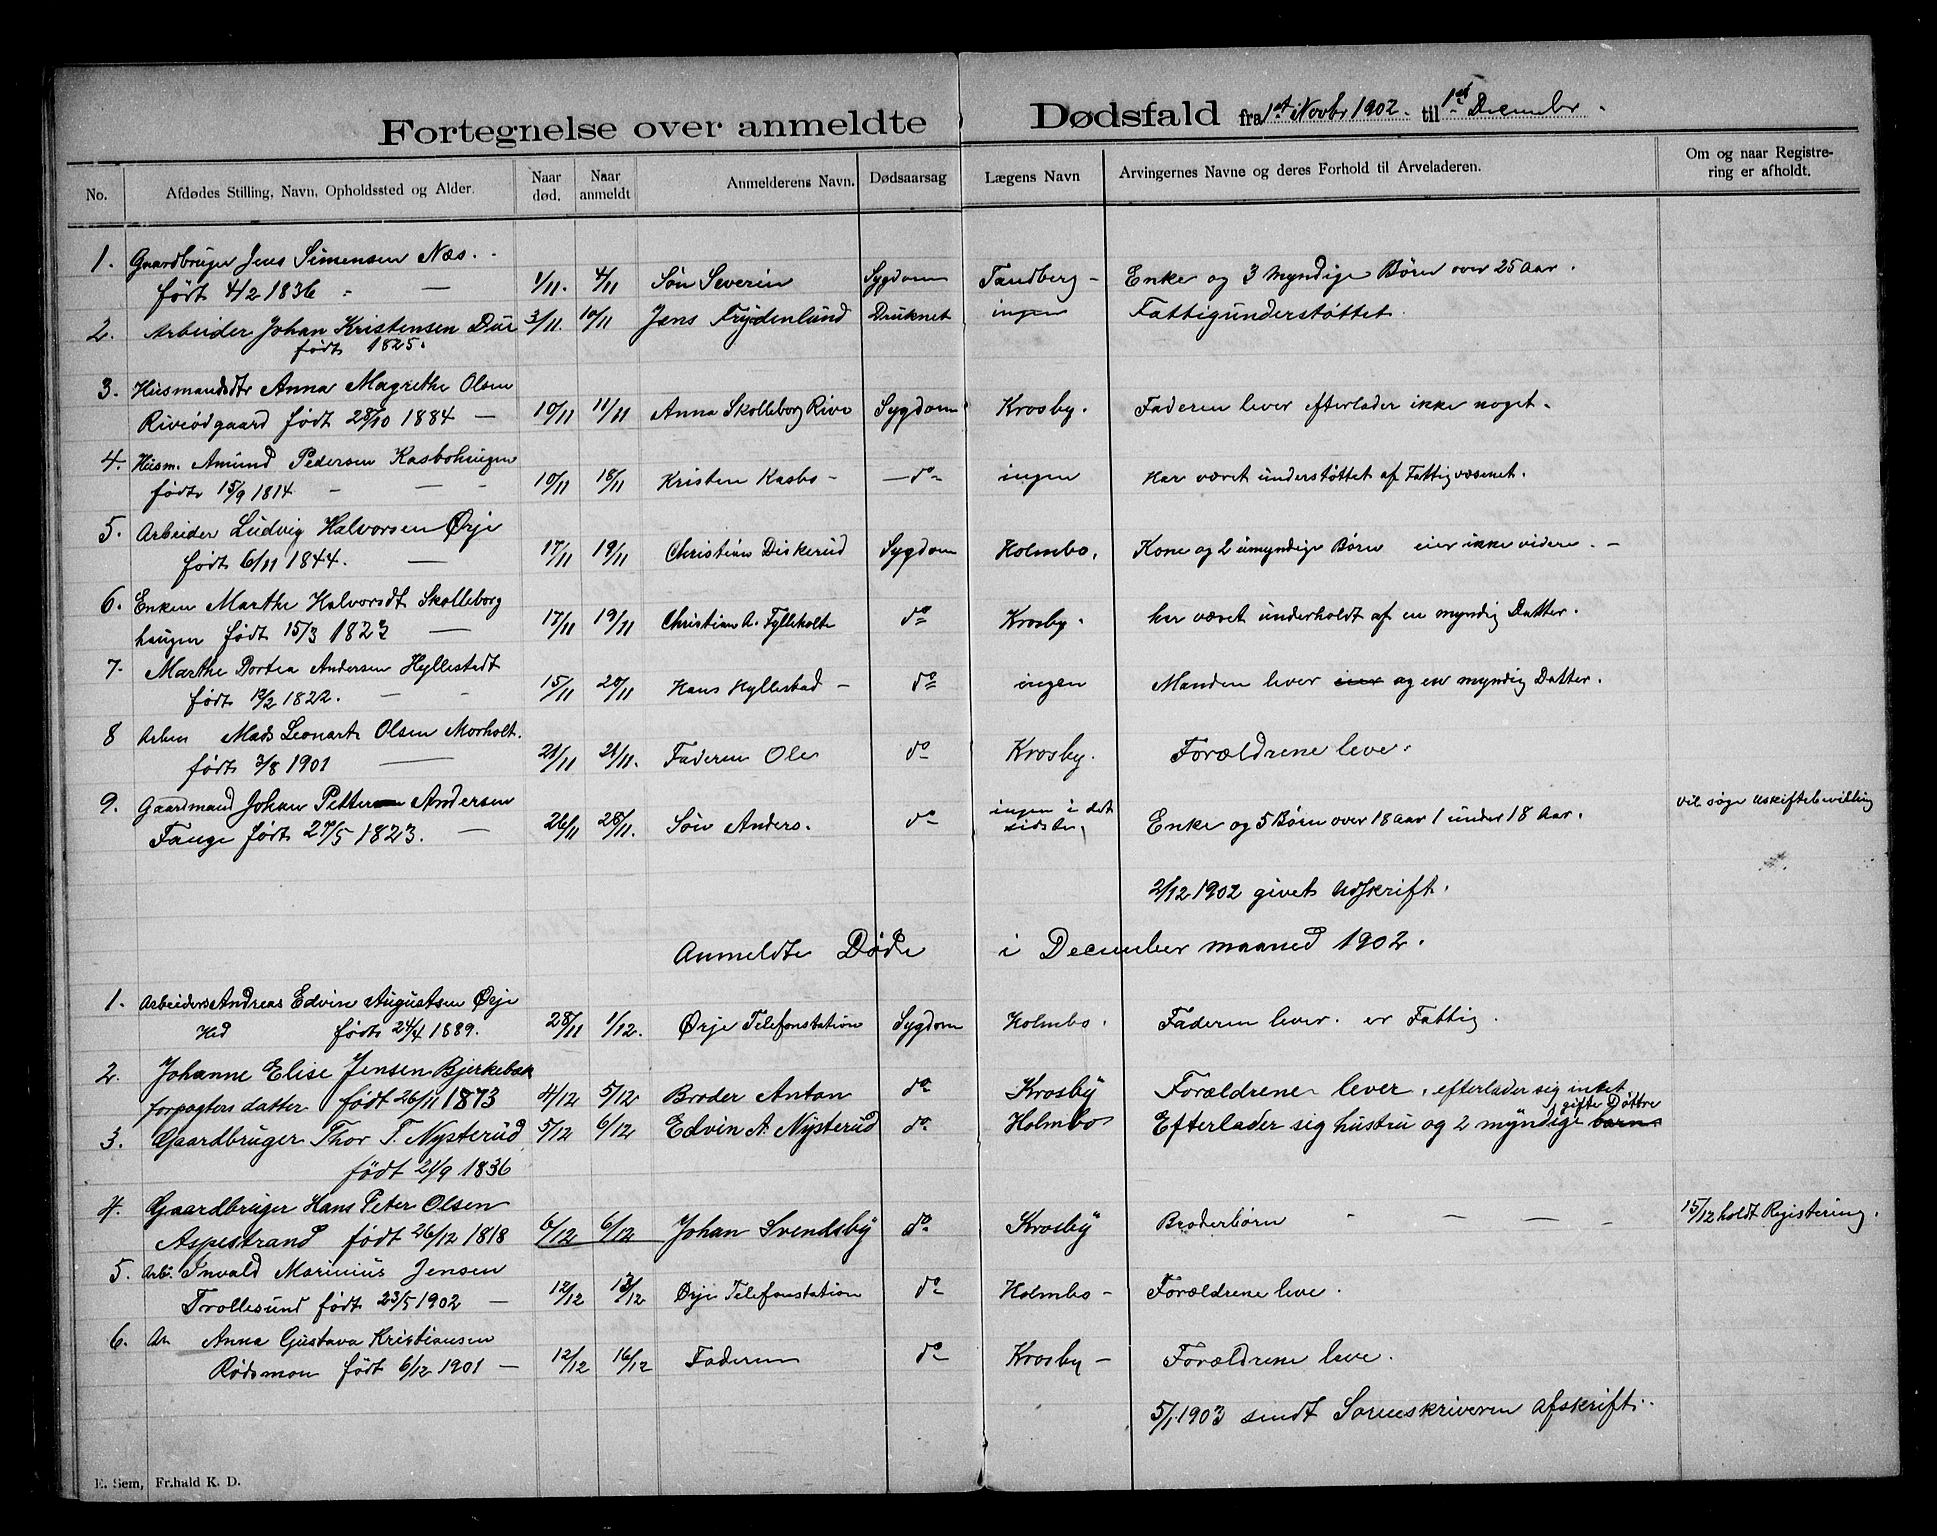 Fortegnelse over anmeldte Dødsfald fra 1st Novbr 1902. til 1st Decembr.
No. Afdødes Stilling, Navn, Opholdssted og Alder. Naar død. Naar anmeldt Anmelderens Navn. Dødsaarsag Lægens Navn Arvingernes Navne og deres Forhold til Arveladeren. Om og naar Registrering er afholdt.
1. Gaardbruger Jens Simensen Næs.
født 4/2 1836 - — 1/11. 4/11 Søn Severin Sygdom Tandberg - Enke og 3 myndige Børn over 25 Aar.
2. Arbeider Johan Kristensen Dur 3/11 10/11 Jens Frydenlund Druknet ingen Fattigunderstøttet
født 1825.
3. Husmandsdtr Anna Magrethe Olsen
Riveødgaard født 28/10 1884 — 10/11 11/11 Anna Skolleborg Rive Sygdom Krosby. Faderen lever efterlader ikke noget.
4. Husm. Amund Pedersen Kasbohaugen
født 15/9 1814 - — - 10/11 18/11 Kristen Kasbo - — do - ingen Har været understøttet af Fattigvæsenet.
5. Arbeider Ludvig Halvorsen Ørje
født 6/11 1844. — 17/11 19/11 Christian Diskerud Sygdom Holmbo. Kone og 2 umyndige Børn eier ikke videre. -
6. Enken Marthe Halvorsdt Skolleborg
haugen født 15/3 1823 — 17/11 19/11 Christian A. Fylleholt do Krosby. har været underholdt af en myndig Datter.
7. Marthe Dortea Andersen Hyllestadt
født 12/2 1822. — - 15/11 20/11 Hans Hyllestad - do ingen Manden lever og en myndig Datter.
8 Arben Mads Leonart Olsen Morholt.
født 3/8 1901 — 21/11 21/11. Faderen Ole do Krosby. Forældrene leve.
9. Gaardmand Johan Petter Andersen
Tange født 27/5 1823. — 26/11 28/11. Søn Anders. do ingen i det sidste. Enke og 5 Børn over 18 aar 1 under 18 Aar. vil søge Uskiftebevilling
2/12 1902 givet Udskrift.
Anmeldte Døde i December maaned 1902.
1. Arbeiders Andreas Edvin Augustsen Ørje
Hed født 24/4 1889. 28/11 1/12. Ørje Telefonstation Sygdom Holmbo. Faderen lever. er Fattig.
2. Johanne Elise Jensen Bjerkebæk
forpagters datter født 26/11 1873 4/12 5/12 Broder Anton do Krosby Forældrene lever, efterlader sig intet
3. Gaardbruger Thor T. Nysterud 5/12 6/12 Edvin A. Nysterud do Holmbo Efterlader sig hustru og 2 myndige gifte Døttre barn
født 21/9 1836
4. Gaardbruger Hans Peter Olsen
Aspestrand født 26/12 1818 6/12 6/12 Johan Svendsby do Krosby Broderbørn - — — - 15/12 holdt Registering.
5. Arb. Invald Marinius Jensen
Trollesund født 23/5 1902 — 12/12 13/12 Ørje Telefonstation do Holmbo - Forældrene leve.
6. Ar Anna Gustava Kristiansen
Rødsmon født 6/12 1901 — 12/12 16/12 Faderen do Krosby - Forældrene leve.
5/1 1903 sendt Sorenskriveren Afskrift.
E. Sem, Fr.hald K. D.